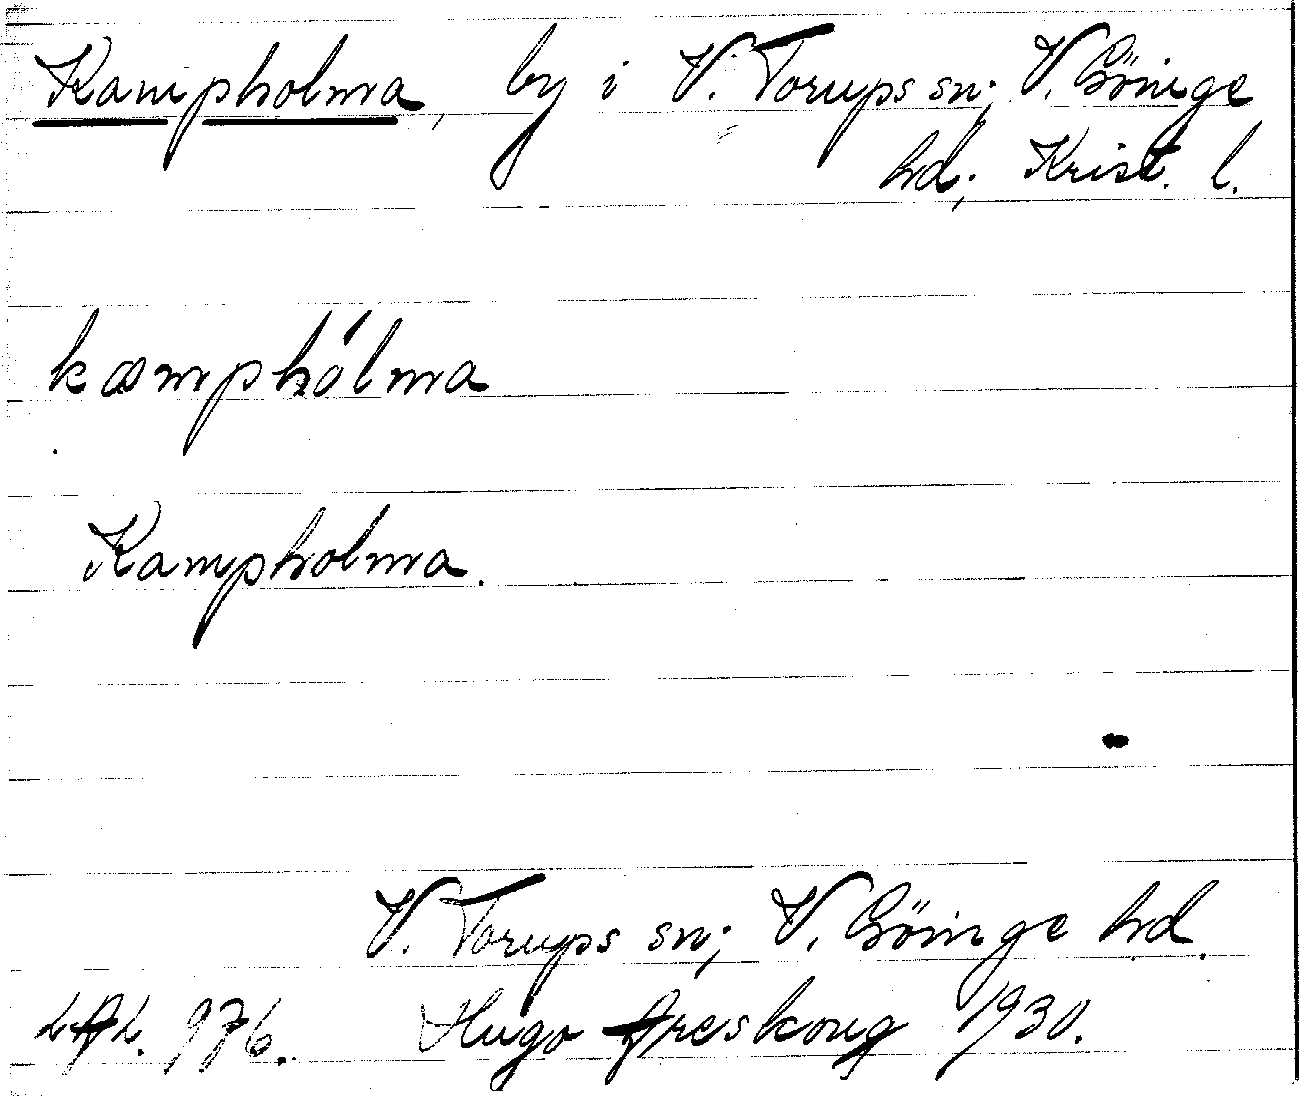 Kampholma, by i V. Torups sn; V. Göinge
hd; Krist. l.
kamphólma
Kampholma.
V. Torups sn; V. Göinge hd.
976. Hugo Areskoug 1930.